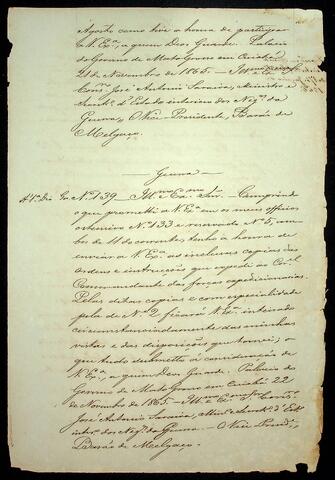 Agosto como tive a honra de participar
a V. Exª, a quem Deos Guarde. Palacio
do Governo de Mato Grosso em Cuiabá
21 de Novembro de 1865. Illmo e Exmo
Consº José Antonio Saraiva, Ministro e
Secretº d'Estado interino dos Negos da
Guerra, O Vice-Presidente, Barão de
Melgaço.
Guerra
Nº 139 Illmo e Exmo Snr. Cumprindo
o que prometti a V. Exª em os meus officios
ostensivo Nº 133 e reservado Nº 5, am-
bos de 11 do corrente, tenho a honra de
enviar a V. Exª as inclusas copias das
Ordens e instrucções que expedi ao Cel
Commandante das forças expedicionarias.
Pelas ditas copias e com especialidade
pela de Nº 2 ficará V. Exª inteirado
circunstanciadamente das minhas
vistas e das disposições que tomei; o
que tudo submetto á consideração de
V. Exª, a quem Deos Guarde. Palacio do
Governo de Mato Grosso em Cuiabá 22
de Novembro de 1865. Illmo e Exmo Consº
José Antonio Saraiva, Minº e Secretº d'Estº
interº dos Negos da Guerra. O Vice Presidº,
Barão de Melgaço.